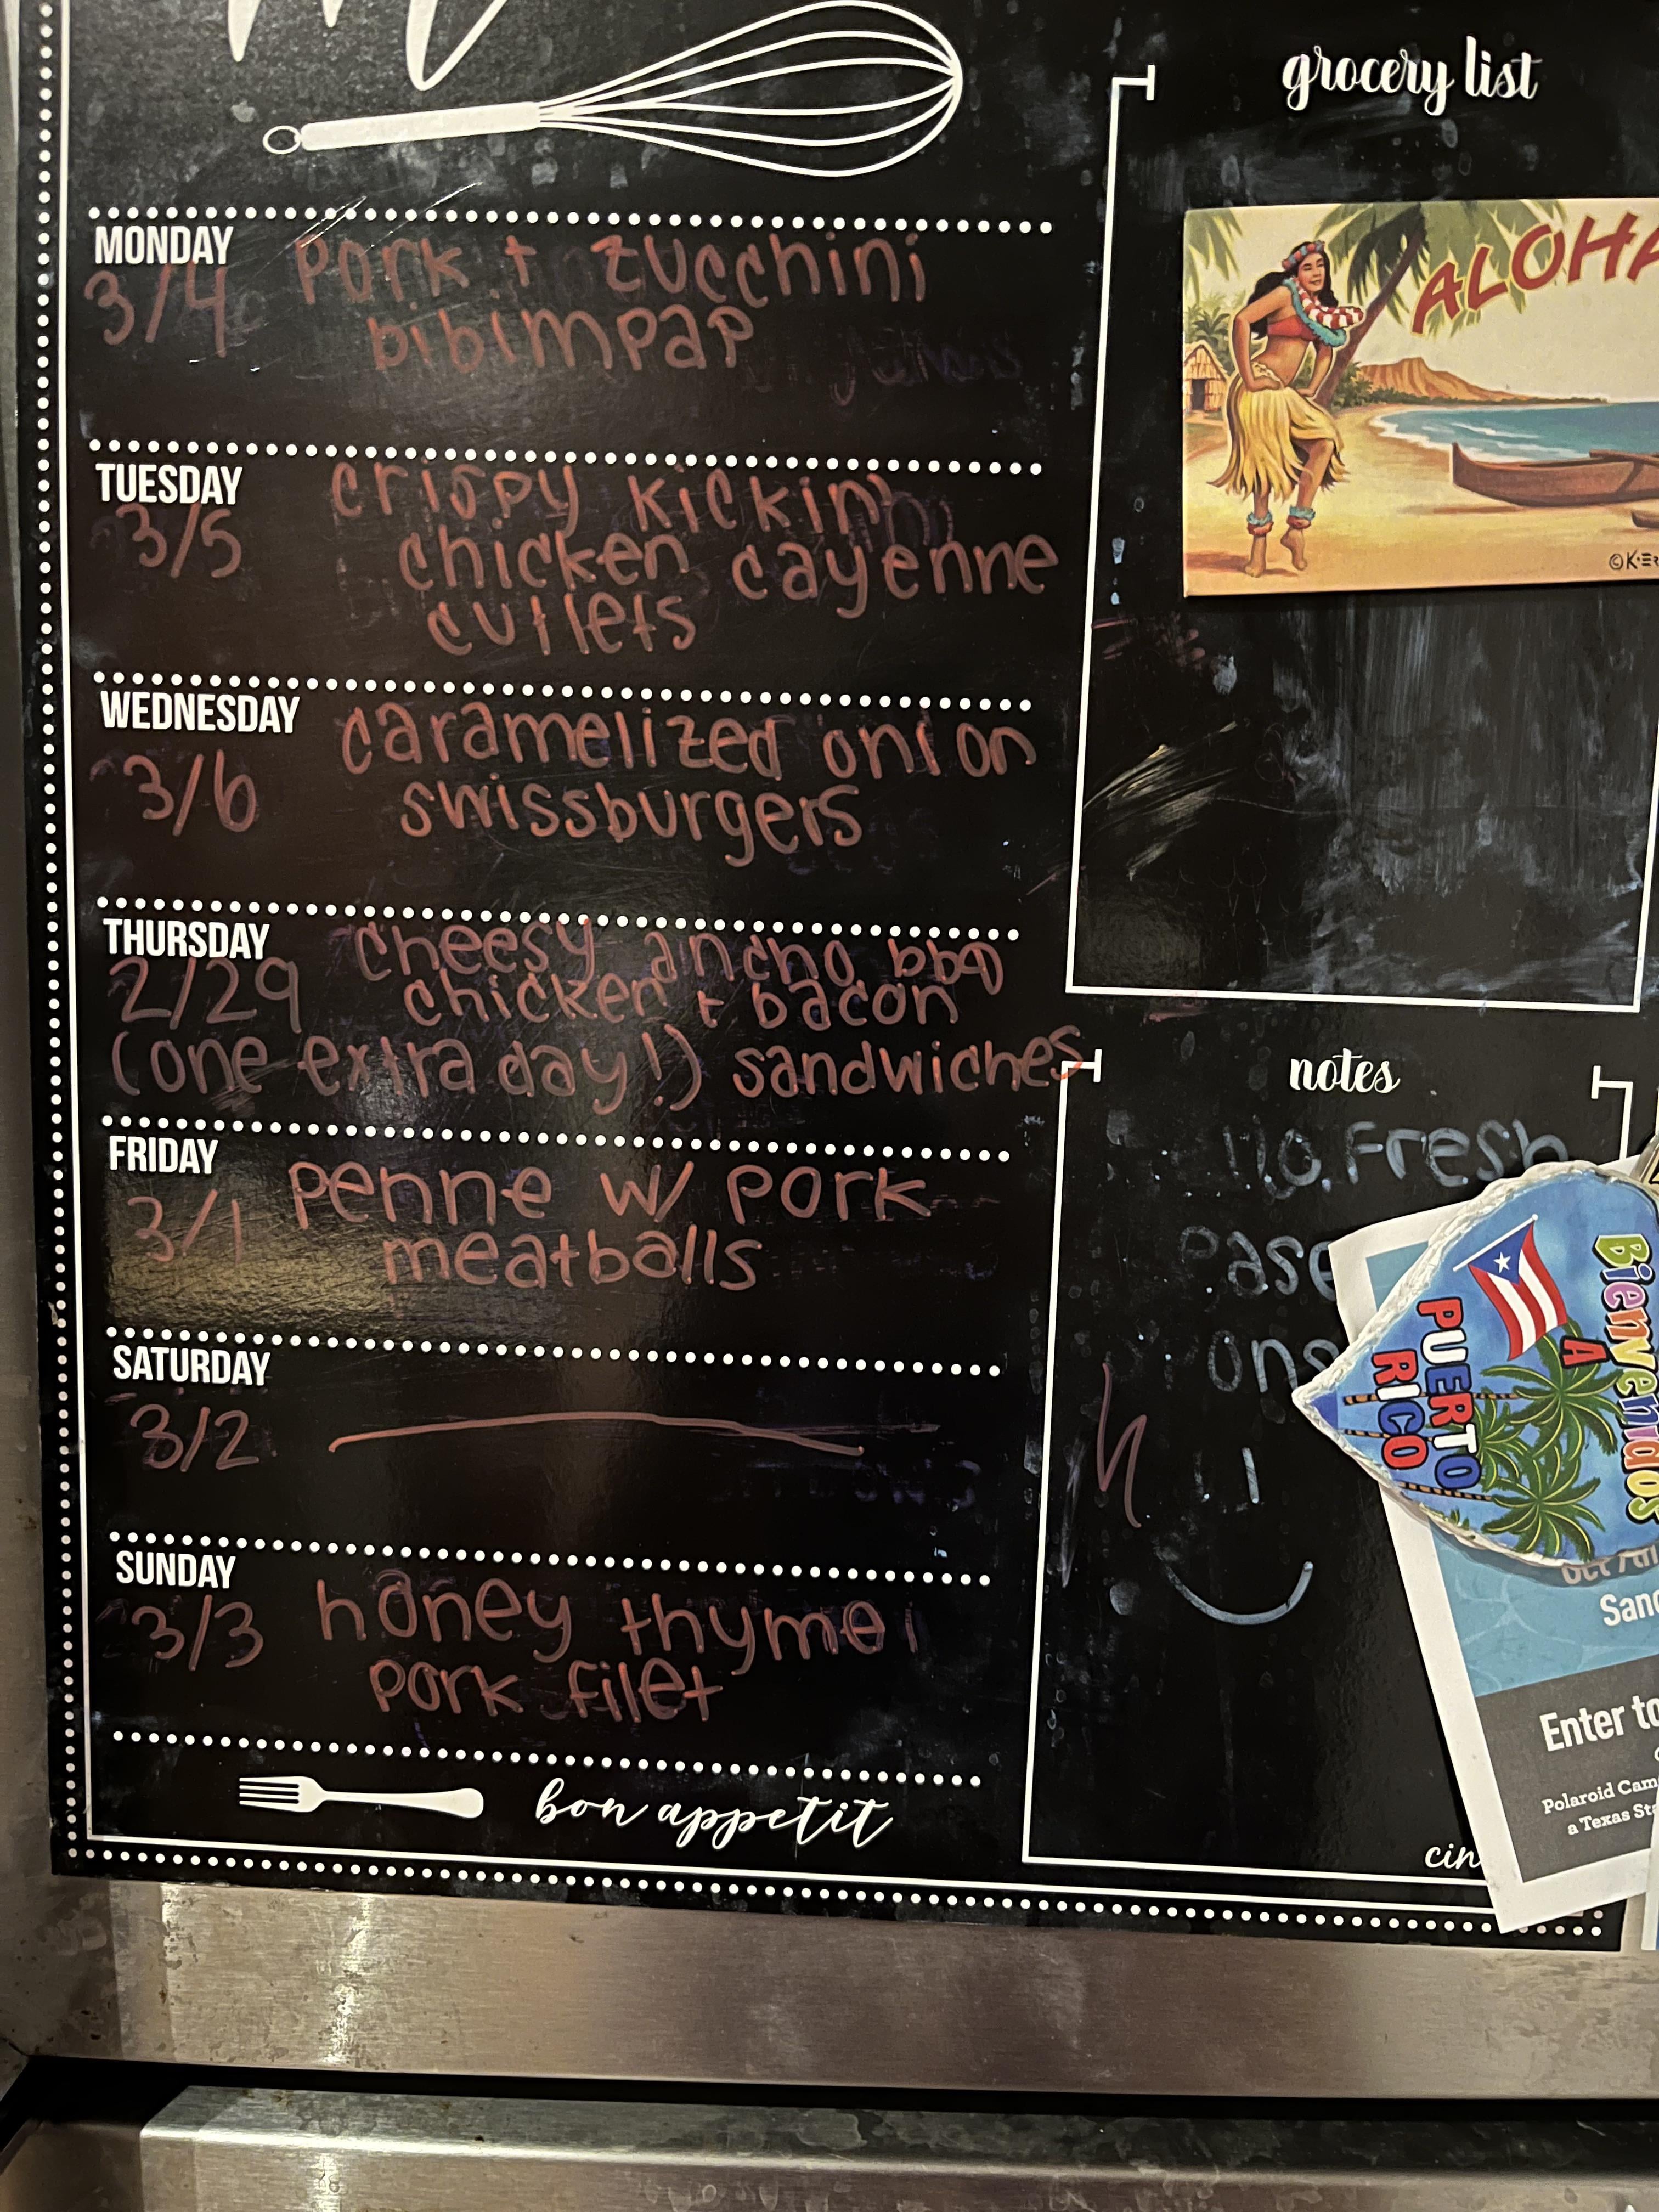 MONDAY
3/4 pork + zucchini
bibimpap
TUESDAY
3/5 crispy kickin
chicken cayenne
cutlets
WEDNESDAY
3/6 caramelized onion
swissburgers
THURSDAY
2/29 cheesy ancho bbq
chicken + bacon
(one extra day!) sandwiches
FRIDAY
3/1 penne w/ pork
meatballs
SATURDAY
3/2
SUNDAY
3/3 honey thyme
pork filet
bon appetit
grocery list
ALOHA
notes
Fresh
Bienvenidos
A
PUERTO
RICO
Enter to
Polaroid Cam
a Texas Sta